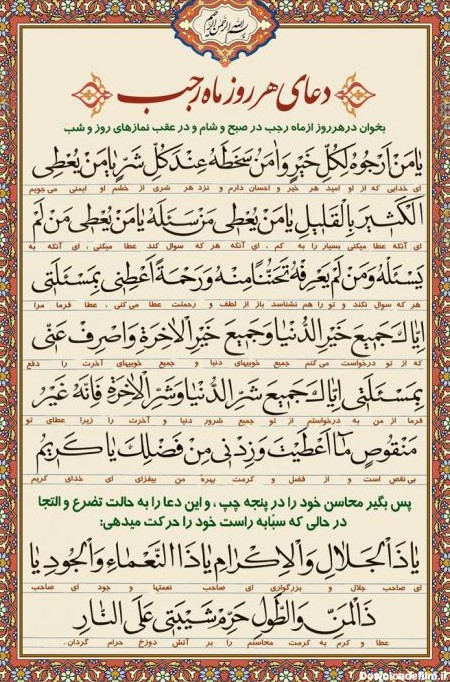 بسم الله الرحمن الرحیم
دعای هر روز ماه رجب
بخوان درهرروز ازماه رجب در صبح و شام و در عقب نمازهای روز و شب
یٰامَنْ اَرْجُوهُ لِکُلِّ خَیْرٍ وَاٰمَنُ سَخَطَهُ عِنْدَ کُلِّ شَرٍّ یٰامَنْ یُعْطِی
ای خدایی که از او امید هر خیر و احسان دارم و نزد هر شری از خشم او ایمنی می جویم
الْکَثیرَ بِالْقَلیلِ یٰامَنْ یُعْطی مَنْ سَئَلَهُ یٰامَنْ یُعْطی مَنْ لَمْ
ای آنکه عطا میکنی بسیار را به کم ، ای آنکه هر که سوال کند عطا میکنی ، ای آنکه به
یَسْئَلْهُ وَمَنْ لَمْ یَعْرِفْهُ تَحَنُّنًا مِنْهُ وَرَحْمَةً اَعْطِنی بِمَسْئَلَتی
هر که سوال نکند و تو را هم نشناسد باز از لطف و رحمتت عطا می کنی ، عطا فرما مرا
اِیّٰاکَ جَمیعَ خَیْرِ الدُّنْیٰا وَجَمیعَ خَیْرِ الْاٰخِرَةِ وَاصْرِفْ عَنّی
که از تو درخواست می کنم جمیع خوبیهای دنیا و جمیع خوبیهای آخرت را و دفع
بِمَسْئَلَتی اِیّٰاکَ جَمیعَ شَرِّ الدُّنْیٰا وَشَرِّ الْاٰخِرَةِ فَاِنَّهُ غَیْرُ
فرما از من به درخواستم از تو جمیع شرور دنیا و آخرت را زیرا عطای تو
مَنْقُوصٍ مٰا اَعْطَیْتَ وَزِدْنی مِنْ فَضْلِکَ یٰا کَریمُ
بی نقص است و از فضل و کرمت بهره من بیفزای ای خدای کریم
پس بگیر محاسن خود را در پنجه چپ ، و این دعا را به حالت تضرع و التجا
در حالی که سبّابه راست خود را حرکت میدهی:
یٰاذَا الْجَلٰالِ وَالْاِکْرٰامِ یٰاذَا النَّعْمٰاءِ وَالْجُودِ یٰا
ای صاحب جلال و بزرگواری ای صاحب نعمتها و جود ای صاحب
ذَاالْمَنِّ وَالطَّوْلِ حَرِّمْ شَیْبَتی عَلَی النّٰارِ
عطا و کرم به کرمت محاسنم را بر آتش دوزخ حرام گردان.